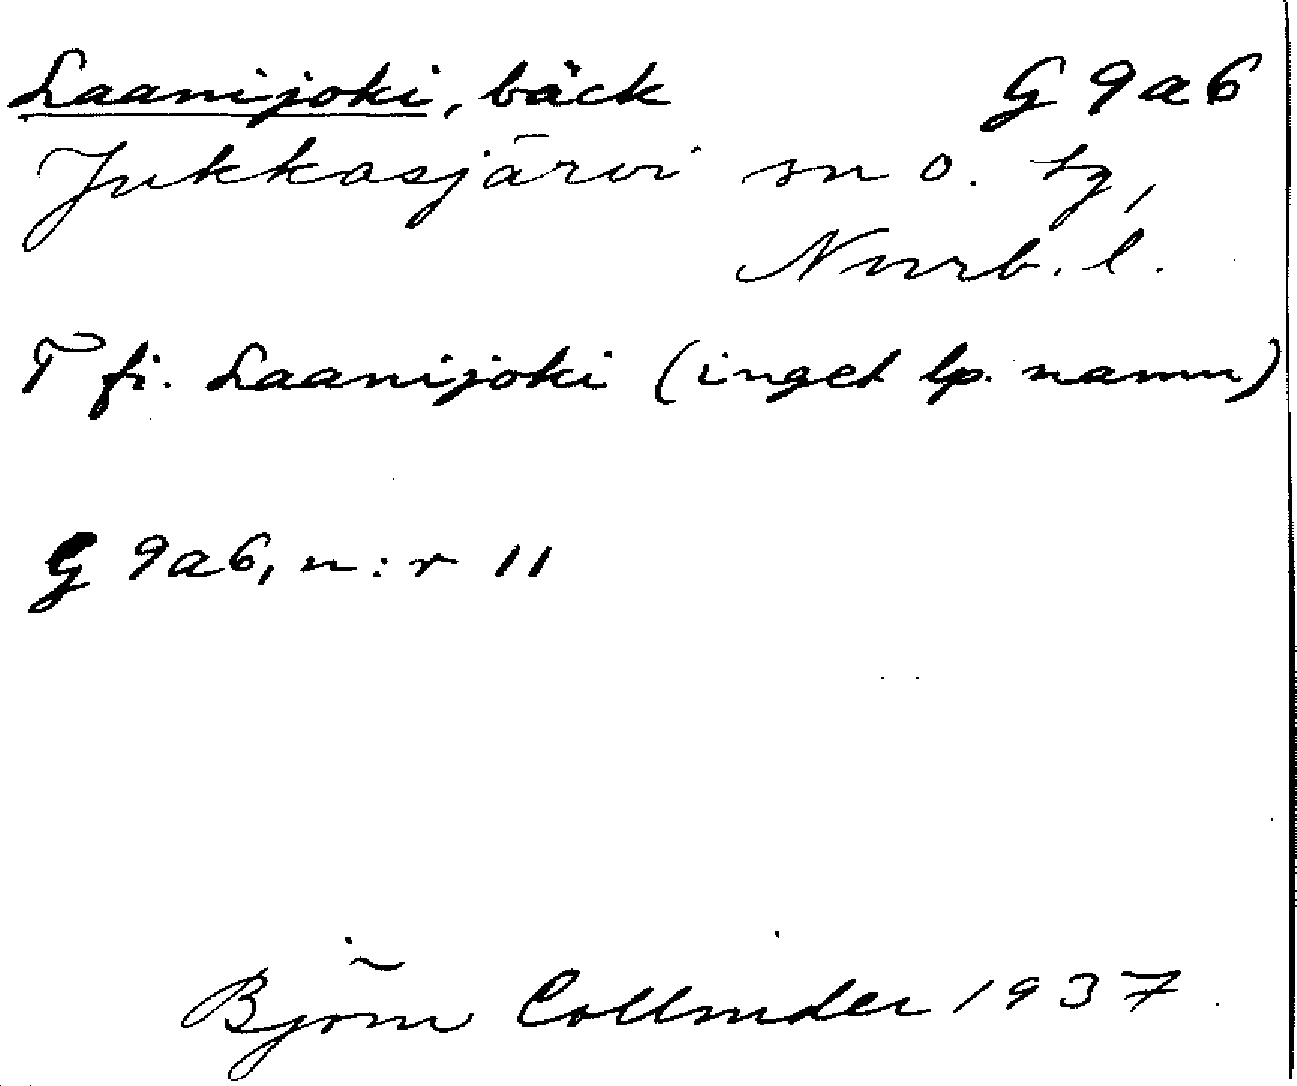 Laanijoki, bäck G 9a6
Jukkasjärvi sn o. tg,
Norrb. l.
T fi. Laanijoki (inget lp. namn)
G 9a6, n:r 11
Björn Collinder 1937